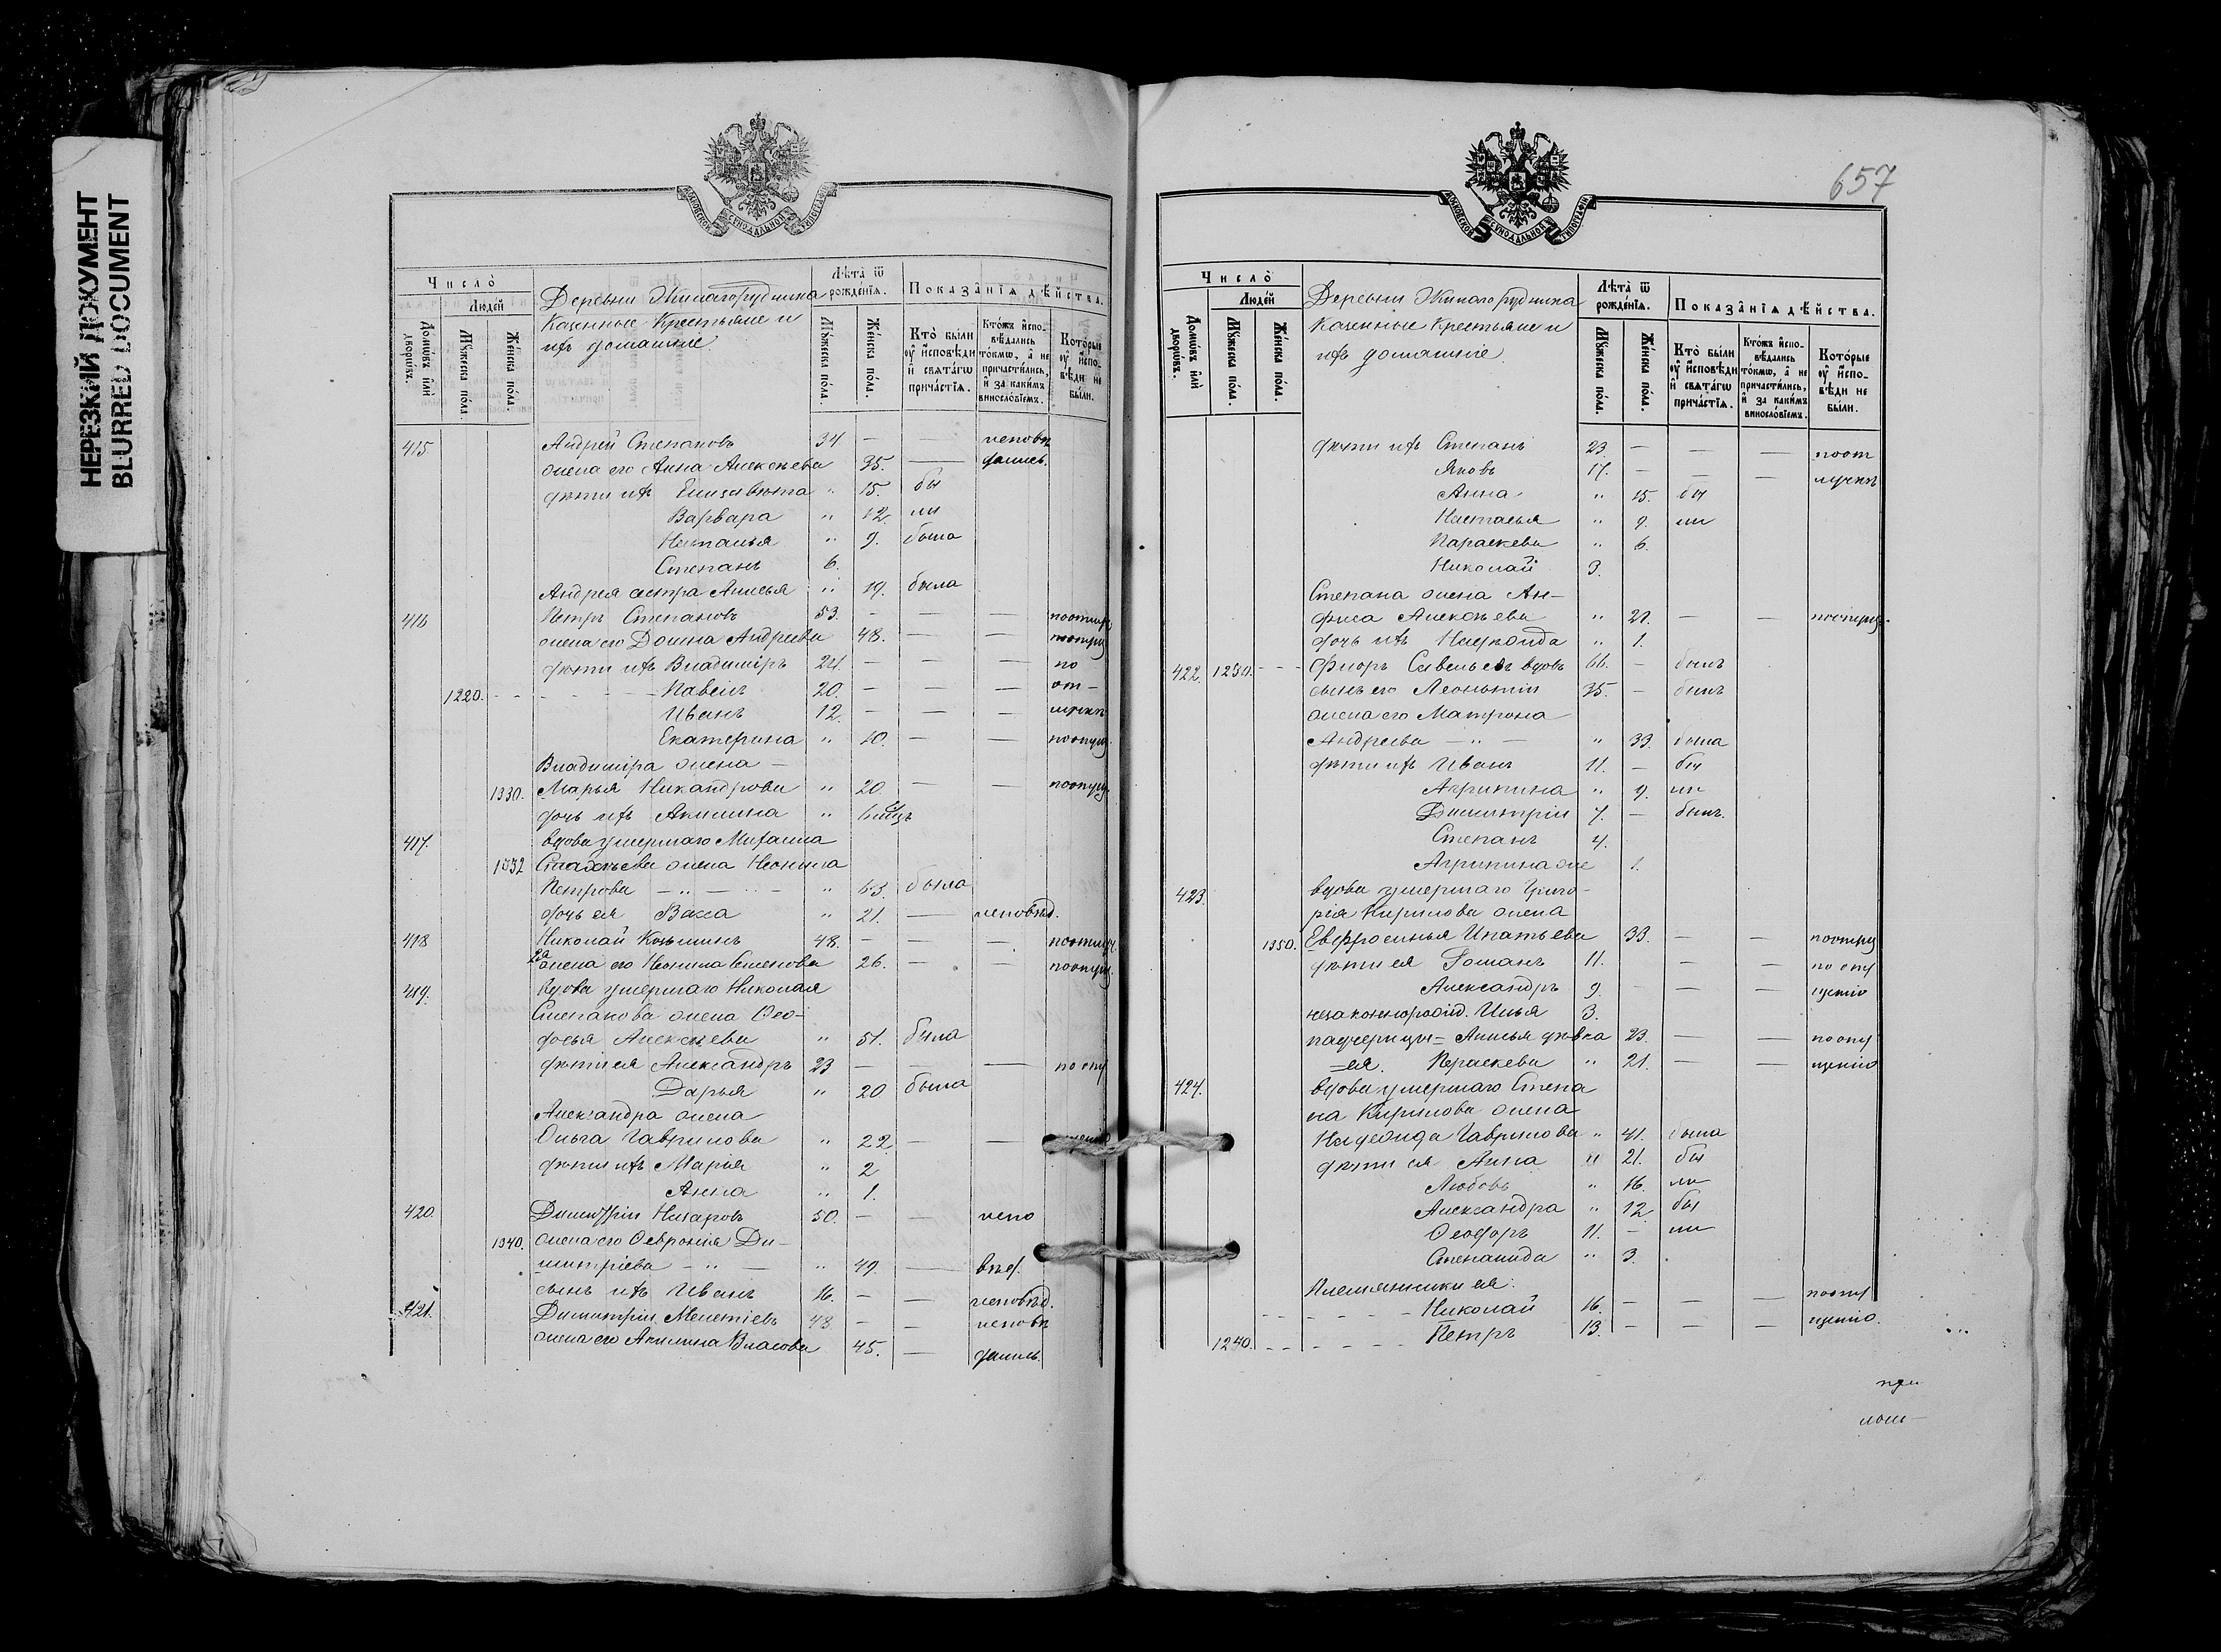 НЕРЕЗКИЙ ДОКУМЕНТ
BLURRED DOCUMENT
МОСКОВСКОЙ СѴНОДАЛЬНОЙ ТИПОГРАФІИ
Число̀
Людей
Домѡвъ и҆лѝ дворѡвъ.
Мꙋжеска по́ла.
Же́нска по́ла.
Деревни Жилаго Рудника
Казенные Крестьяне и
ихъ домашніе.
Лѣта̀ ѿ рожде́нїѧ.
Мꙋжеска по́ла.
Же́нска по́ла.
Показа̑нїѧ дѣ́йства.
Кто̀ бы́ли ᲂу҆ и҆сповѣди и҆ свѧта́гѡ прича́стїѧ.
Кто́жъ и҆спо- вѣ́дались то́кмѡ, а҆ не причасти́лись, и҆ за каки́мъ винослѡ́вїемъ.
Кото́рые ᲂу҆ и҆спо- вѣ́ди не бы́ли.
415 Андрей Степановъ 34 — — исповѣ
жена его Анна Алексѣева 35. — дались.
дѣти ихъ Елизавѣта " 15. бы
Варвара " 12. ли
Наталья " 9. была
Степанъ 6.
Андрея сестра Анисья " 19. была
416 Петръ Степановъ 53. — — —
жена его Домна Андреева 48. — —
дѣти ихъ Владиміръ 24 — — — по
1220. Павелъ 20. — — — от-
Иванъ 12. — — —
Екатерина " 10. — —
Владиміра жена —
1330. Марья Никандрова " 20 — —
дочь ихъ Акилина " 6
417. вдова умершаго Михаила
1332 жена Неонила
Петрова — " — " 63 была
дочь ея Васса " 21. — исповѣд.
418 Николай Козьминъ 48. — — —
2я жена его Неонила Семенова 26. — —
419. Вдова умершаго Николая
Степанова жена Ѳео-
досья Алексѣева " 51. была
дѣти ея Александръ 23 — — — по опу
Дарья " 20 была
Александра жена
Ольга Гаврилова " 22 — —
дѣти ихъ Марія " 2
Анна " 1.
420. Димитрій Назаровъ 50. — — испо
1340. жена его Ѳевронія Ди-
митріева — " — " 49. — вѣд.
сынъ ихъ Иванъ 16. — — исповѣд.
421. Димитрій Мелетіевъ 48 — — исповѣ
жена его Акилина Власова 45. — дались.
657
МОСКОВСКОЙ СѴНОДАЛЬНОЙ ТИПОГРАФІИ
Число̀
Людей
Домѡвъ и҆лѝ дворѡвъ.
Мꙋжеска по́ла.
Же́нска по́ла.
Деревни Жилаго Рудника
Казенные Крестьяне и
ихъ домашніе.
Лѣта̀ ѿ рожде́нїѧ.
Мꙋжеска по́ла.
Же́нска по́ла.
Показа̑нїѧ дѣ́йства.
Кто̀ бы́ли ᲂу҆ и҆сповѣди и҆ свѧта́гѡ прича́стїѧ.
Кто́жъ и҆спо- вѣ́дались то́кмѡ, а҆ не причасти́лись, и҆ за каки́мъ винослѡ́вїемъ.
Кото́рые ᲂу҆ и҆спо- вѣ́ди не бы́ли.
дѣти ихъ Степанъ 23 — — — поот
Яковъ 17. — — — лучкѣ
Анна " 15. бы
Настасья " 9. ли
Параскева " 6.
Николай 3.
Степана жена Ан-
фиса Алексѣева " 21. — —
дочь ихъ Надежда " 1.
422. 1230. — Флоръ Савельевъ вдовъ 66. — былъ
сынъ его Леонтій 35. — былъ
жена его Матрона
Андреева — " — " 33. была
дѣти ихъ Иванъ 11. — бы
Агрипина " 9. ли
Димитрій 7. — былъ.
Степанъ 4.
Агрипина же 1.
423. вдова умершаго Григо-
рія Кирилова жена
1350. Евфросинья Ипатьева 33. — —
дѣти ея Романъ 11. — — по опу
Александръ 9. — — щенію
незаконнорожд. Илья 3.
падчерицы = Анисья дѣвка 23. — — по опу
=ея. Параскева " 21. — — щенію
424. вдова умершаго Степа
на Кирилова жена
Надежда Гаврилова " 41. была
дѣти ея Анна " 21. бы
Любовь " 16. ли
Александра " 12. бы
Ѳеодоръ 11. — ли
Степанида " 3.
Племянники ея:
Николай 16. — — — по опу
1240. Петръ 13. — — — щенію.